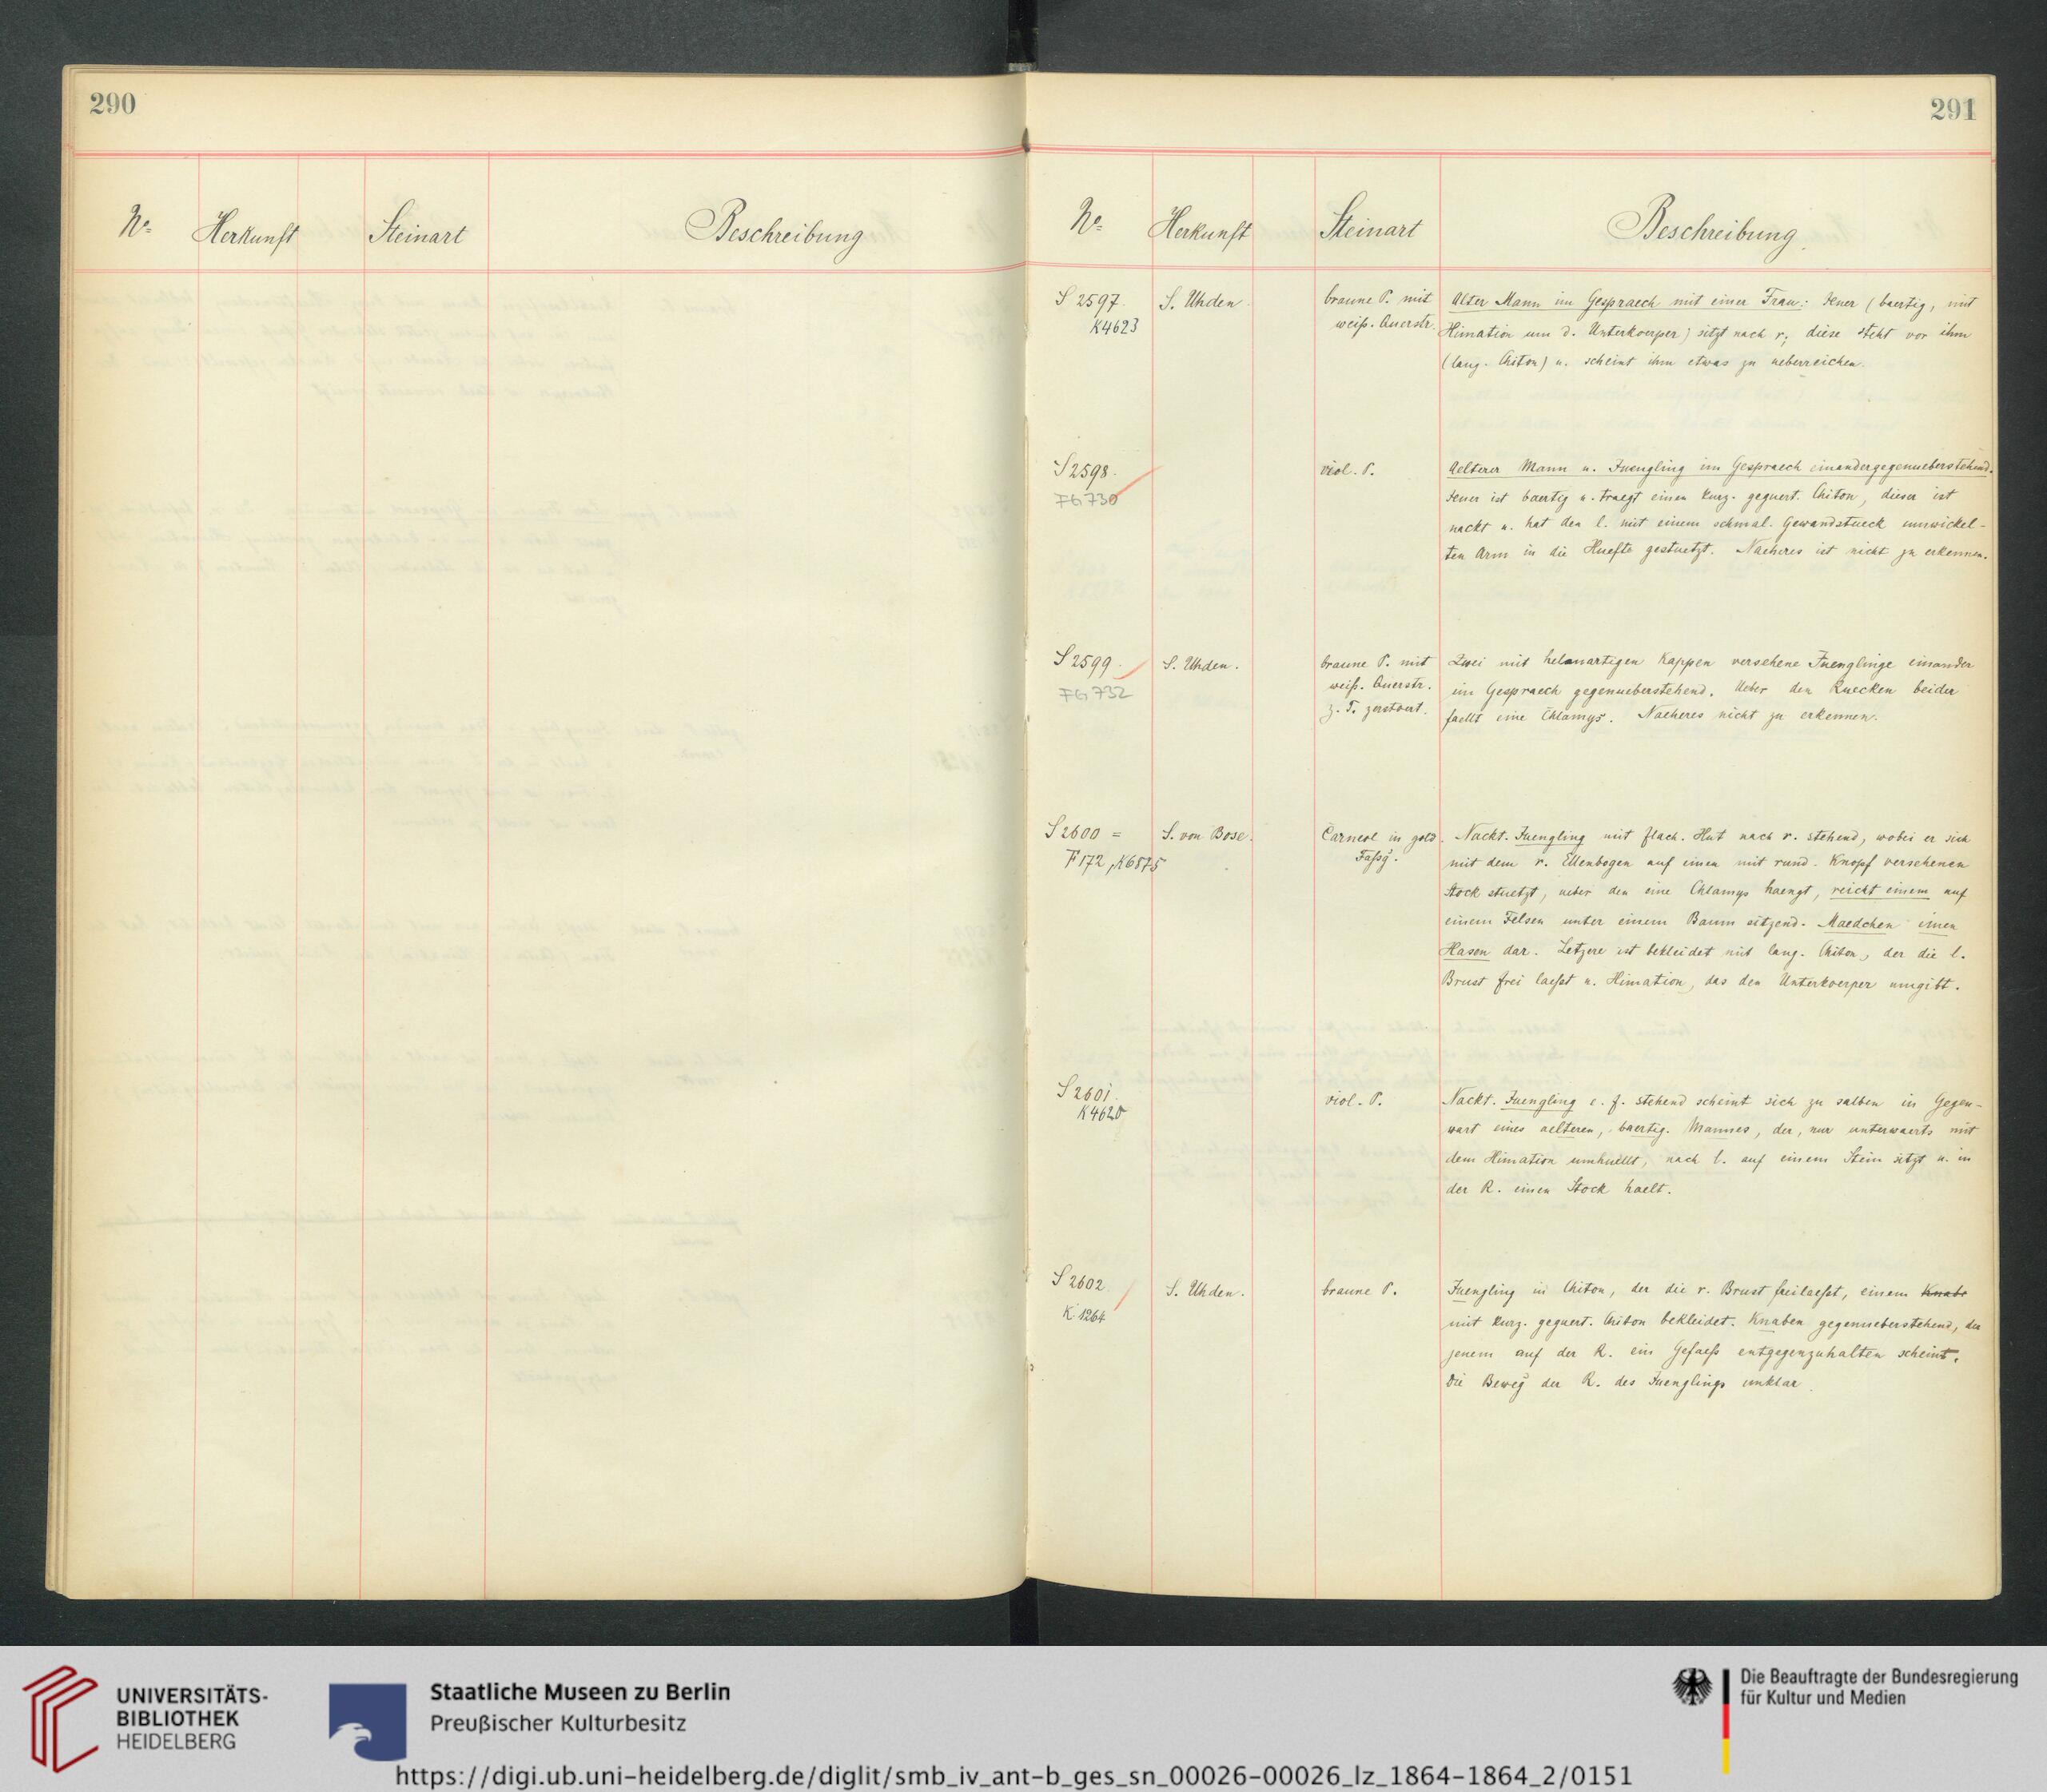 290
No. Herkunft Steinart Beschreibung
291
No. Herkunft Steinart Beschreibung.
S 2597.
K4623
S. Uhden.
braune P. mit
weiß. Querstr.
Alter Mann im Gespraech mit einer Frau: Jener (baertig, mit
Himation um d. Unterkoerper) sitzt nach r., diese steht vor ihm
(lang. Chiton) u. scheint ihm etwas zu ueberreichen.
S 2598.
FG 730
viol. P.
Aelterer Mann u. Juengling im Gespraech einandergegenueberstehend.
Jener ist baertig u. traegt einen kurz. geguert. Chiton, dieser ist
nackt u. hat den l. mit einem schmal. Gewandstueck umwickel-
ten Arm in die Huefte gestuetzt. Naeheres ist nicht zu erkennen.
S 2599.
FG 732
S. Uhden.
braune P. mit
weiß. Querstr.
z. T. zerstoert.
Zwei mit helmartigen Kappen versehene Juenglinge einander
im Gespraech gegenueberstehend. Ueber den Ruecken beider
faellt eine Chlamys. Naeheres nicht zu erkennen.
S 2600 =
F 172, K6875
S. von Bose.
Carneol in gold.
Faßg.
Nackt. Juengling mit flach. Hut nach r. stehend, wobei er sich
mit dem r. Ellenbogen auf einen mit rund. Knopf versehenen
Stock stuetzt, ueber den eine Chlamys haengt, reicht einem auf
einem Felsen unter einem Baum sitzend. Maedchen einen
Hasen dar. Letzere ist bekleidet mit lang. Chiton, der die l.
Brust frei laeßt u. Himation, das den Unterkoerper umgibt.
S 2601.
K4620
viol. P.
Nackt. Juengling e. f. stehend scheint sich zu salben in Gegen-
wart eines aelteren, baertig. Mannes, der, nur unterwaerts mit
dem Himation umhuellt, nach l. auf einem Stein sitzt u. in
der R. einen Stock haelt.
S 2602
K. 1264
S. Uhden.
braune P.
Juengling in Chiton, der die r. Brust freilaeßt, einem Knabe
mit kurz. geguert. Chiton bekleidet. Knaben gegenueberstehend, der
jenem auf der R. ein Gefaeß entgegenzuhalten scheint.
Die Beweg. der R. des Juenglings unklar.
UNIVERSITÄTS-
BIBLIOTHEK
HEIDELBERG
Staatliche Museen zu Berlin
Preußischer Kulturbesitz
Die Beauftragte der Bundesregierung
für Kultur und Medien
https://digi.ub.uni-heidelberg.de/diglit/smb_iv_ant-b_ges_sn_00026-00026_lz_1864-1864_2/0151